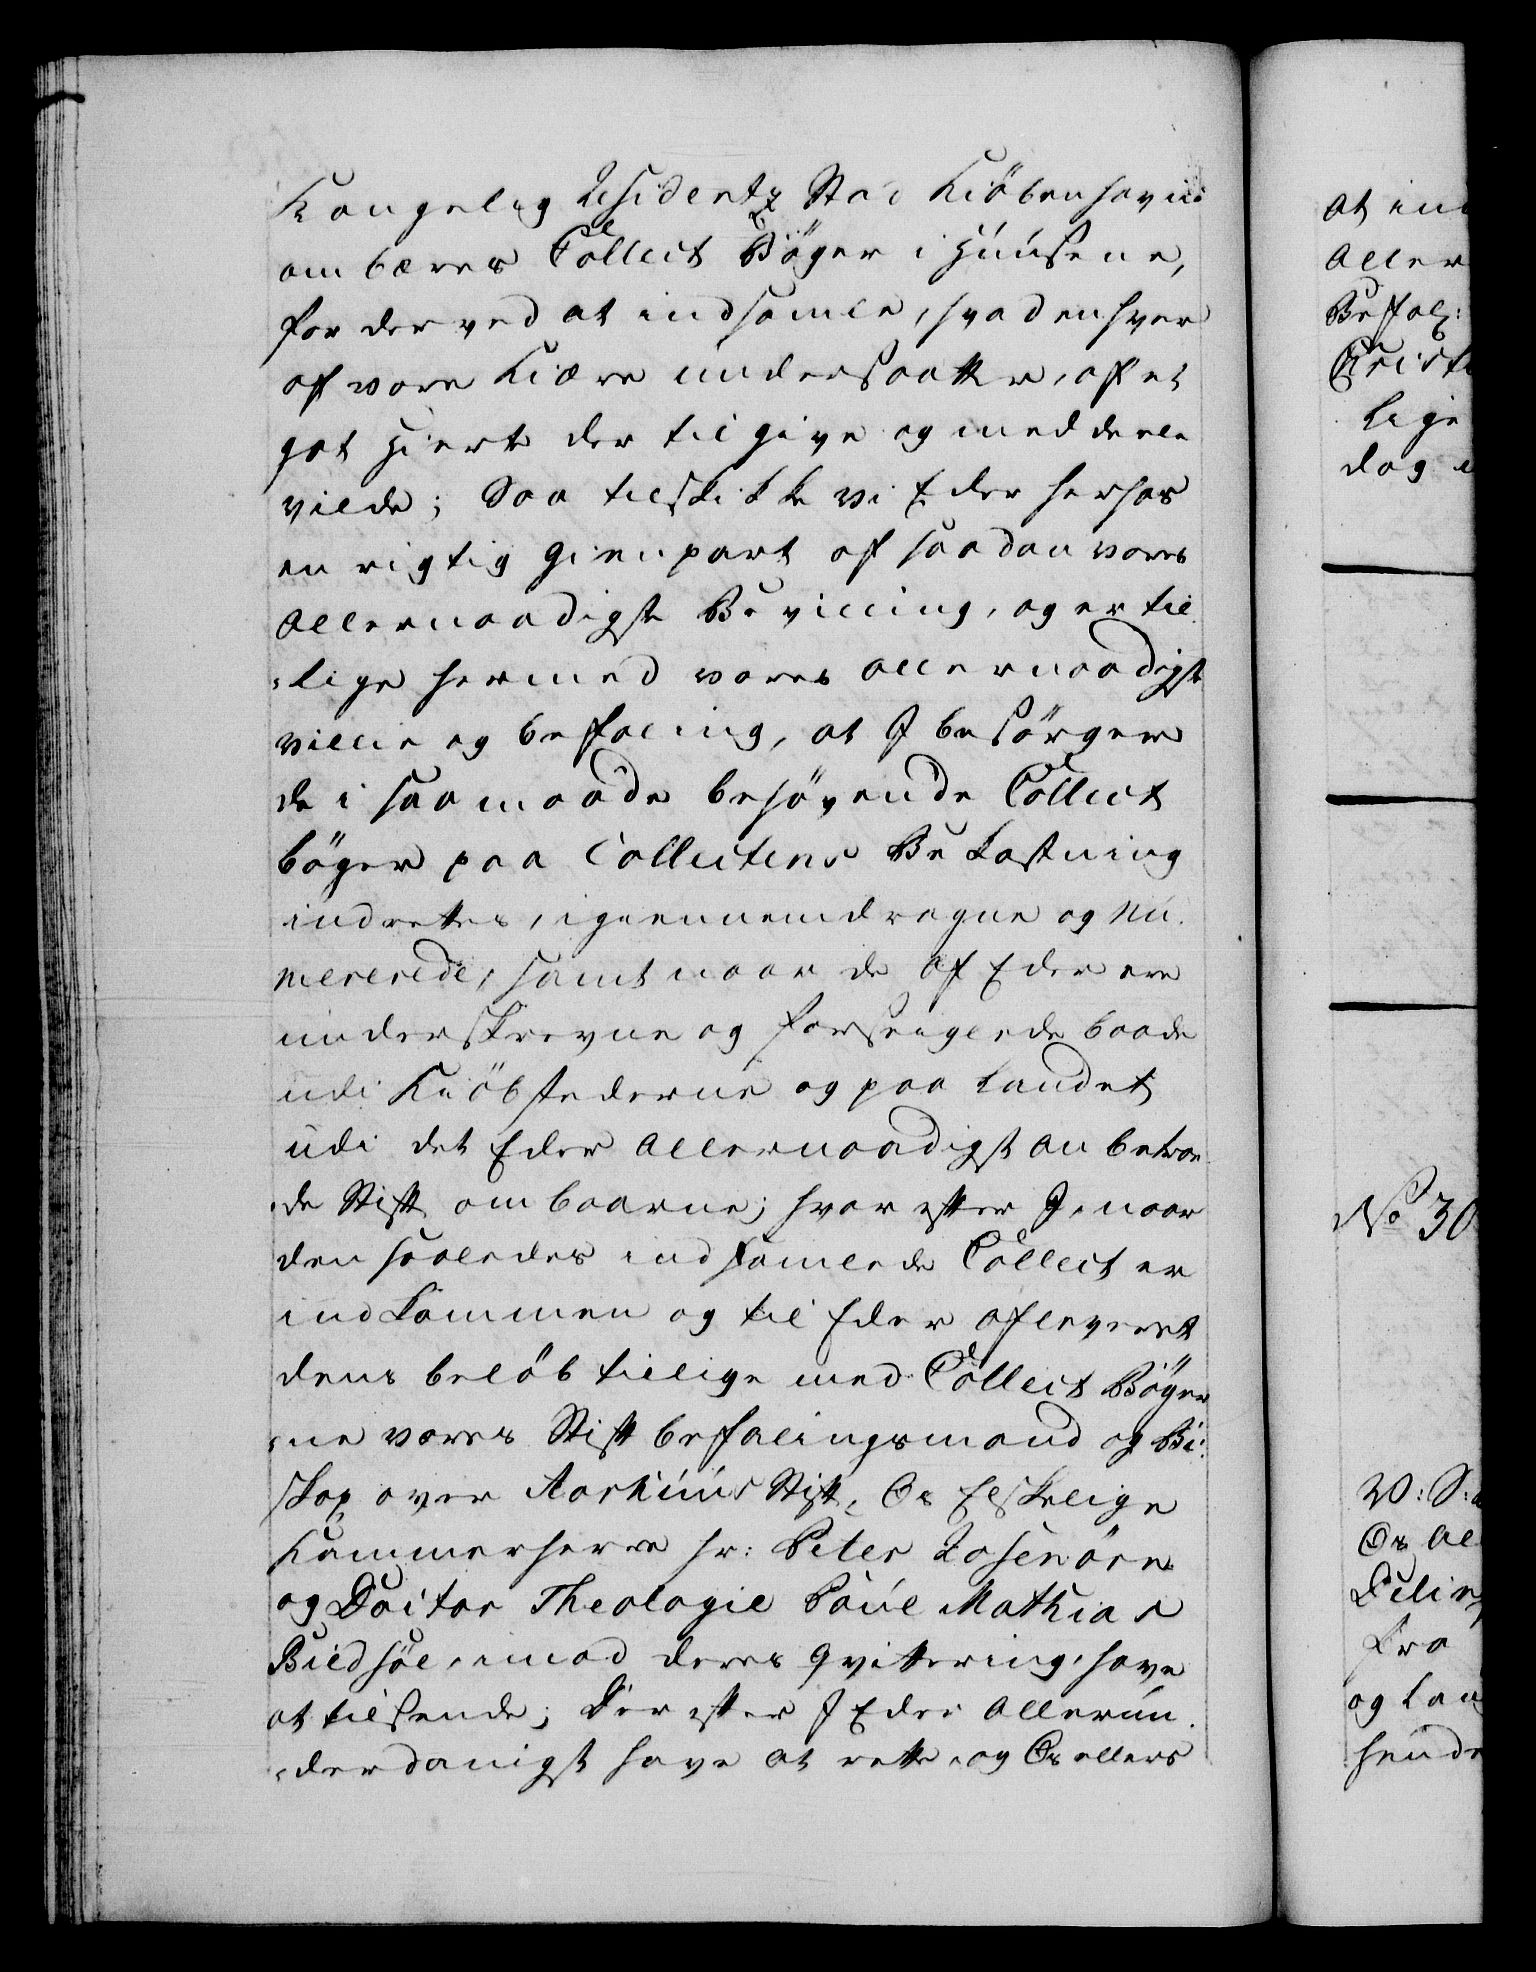 Kongelig Residentz Stad Kiöbenhavn
ombæres Collect Böger i Húúsene,
for derved at indsamle, hvad enhver
af vore Kiære úndersaatter, af et
got Hierte der til give og meddeele
vilde; Saa tilskikke vi Eder herhos
en rigtig Gienpart af saadan vores
Allernaadigste Bevilling, og er til
-lige hermed vores allernaadigste
villie og befaling, at I besörger
de i saa maade behövende Collect
böger paa Collectens Bekostning
indrettes, igiennemdragne og Nú-
mererede, samt naar de af Eder ere
únderskrevne og forseiglede baade
udi Kiöbstederne og paa Landet
údi det Eder Allernaadigst anbetroe
-de Stift ombaarne; hvorefter I, naar
den saaledes indsamlede Collect er
indkommen og til Eder afleveret
dens belöb tillige med Collect Böger
-ne vores Stiftbefalingsmand og Bi-
skop over Aarhúús Stift, Os Elskelige
Kammerherre Hr: Peter Rosenörn
og Doctor Theologie Poúl Mathias
Bildsöe, imod deres Qvittering, have
at tilsende; Derefter I Eder Allerún-
-derdanigst have at rette, og Os ellers
at ind
Aller
Befal:
Christi
Lige
dag
No 30
V: S:
Os Al
Fra
og Lan
hende